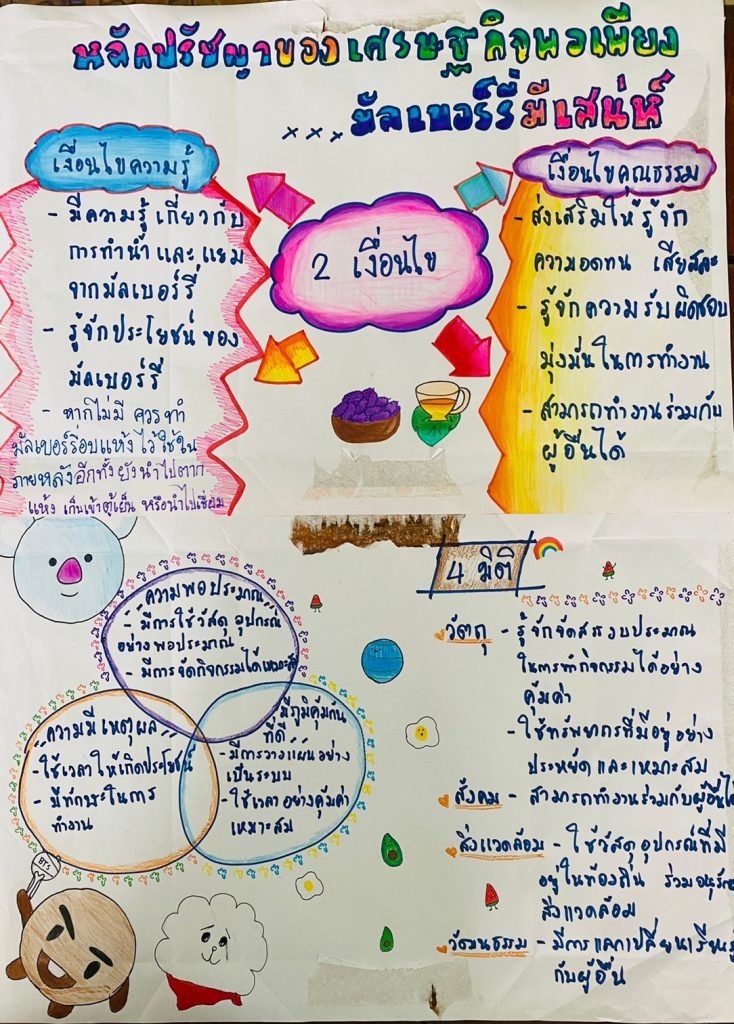 หลักปรัชญาของเศรษฐกิจพอเพียง
...มัลเบอร์รี่มีเสน่ห์
เงื่อนไขความรู้
- มีความรู้เกี่ยวกับ
การทำน้ำและแยม
จากมัลเบอร์รี่
- รู้จักประโยชน์ของ
มัลเบอร์รี่
- หากไม่มี ควรทำ
มัลเบอร์รี่อบแห้งไว้ใช้ใน
ภายหลังอีกทั้งยังนำไปตาก
แห้ง เก็บเข้าตู้เย็น หรือนำไปเชื่อม
2 เงื่อนไข
เงื่อนไขคุณธรรม
- ส่งเสริมให้รู้จัก
ความอดทน เสียสละ
- รู้จักความรับผิดชอบ
มุ่งมั่นในการทำงาน
- สามารถทำงานร่วมกับ
ผู้อื่นได้
"ความพอประมาณ"
- มีการใช้วัสดุ อุปกรณ์
อย่างพอประมาณ
- มีการจัดกิจกรรมได้เหมาะสม
"ความมีเหตุผล"
- ใช้เวลาให้เกิดประโยชน์
- มีทักษะในการ
ทำงาน
"มีภูมิคุ้มกัน
ที่ดี"
- มีการวางแผนอย่าง
เป็นระบบ
- ใช้เวลาอย่างคุ้มค่า
เหมาะสม
BTS
4 มิติ
วัตถุ - รู้จักจัดสรรงบประมาณ
ในการทำกิจกรรมได้อย่าง
คุ้มค่า
- ใช้ทรัพยากรที่มีอยู่อย่าง
ประหยัดและเหมาะสม
สังคม - สามารถทำงานร่วมกับผู้อื่นได้
สิ่งแวดล้อม - ใช้วัสดุ อุปกรณ์ที่มี
อยู่ในท้องถิ่น ร่วมอนุรักษ์
สิ่งแวดล้อม
วัฒนธรรม - มีการแลกเปลี่ยนเรียนรู้
กับผู้อื่น